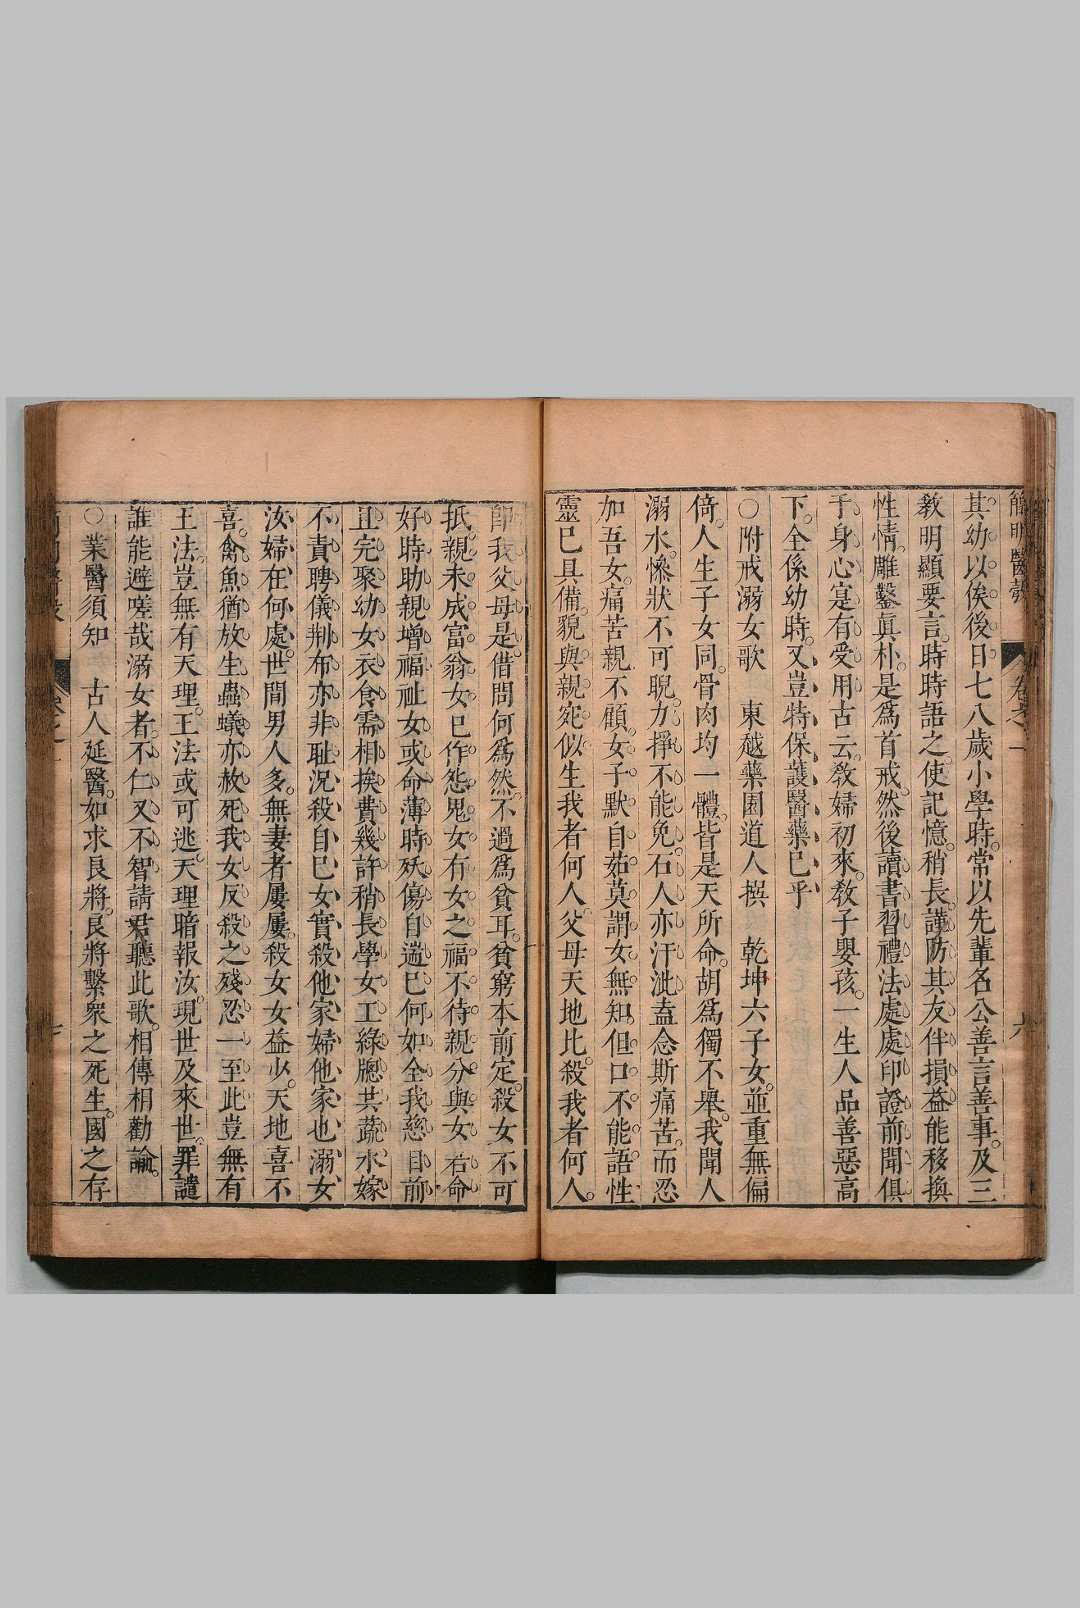 簡明醫彀 卷之一 六
其幼以俟後日七八歲小學時常以先輩名公善言善事及三
教明顯要言時時語之使記憶稍長謹防其友伴損益能移換
性情雕鑿眞朴是爲首戒然後讀書習禮法處處印證前聞俱
于身心寔有受用古云敎婦初來敎子嬰孩一生人品善惡高
下全係幼時又豈特保護醫藥已乎
○附戒溺女歌 東越藥園道人撰 乾坤六子女並重無偏
倚人生子女同骨肉均一體皆是天所命胡爲獨不舉我聞人
溺水慘狀不可睨力掙不能免石人亦汗泚盍念斯痛苦而忍
加吾女痛苦親不顧女子默自茹莫謂女無知但口不能語性
靈已具備貌與親宛似生我者何人父母天地比殺我者何人
卽我父母是借問何爲然不過爲貧耳貧窮本前定殺女不可
抵親未成富翁女已作怨鬼女有女之福不待親分與女若命
好時助親增福祉女或命薄時殀傷自邅已何如全我慈目前
且完聚幼女衣食需相挨費幾許稍長學女工綠牕共蔬水嫁
不責聘儀荆布亦非耻況殺自已女實殺他家婦他家也溺女
汝婦在何處世間男人多無妻者屢屢殺女女益少天地喜不
喜禽魚猶放生蟲蟻亦赦死我女反殺之殘忍一至此豈無有
王法豈無有天理王法或可逃天理暗報汝現世及來世罪譴
誰能避嗟哉溺女者不仁又不智請君聽此歌相傳相勸諭
○業醫須知 古人延醫如求良將良將繫衆之死生國之存